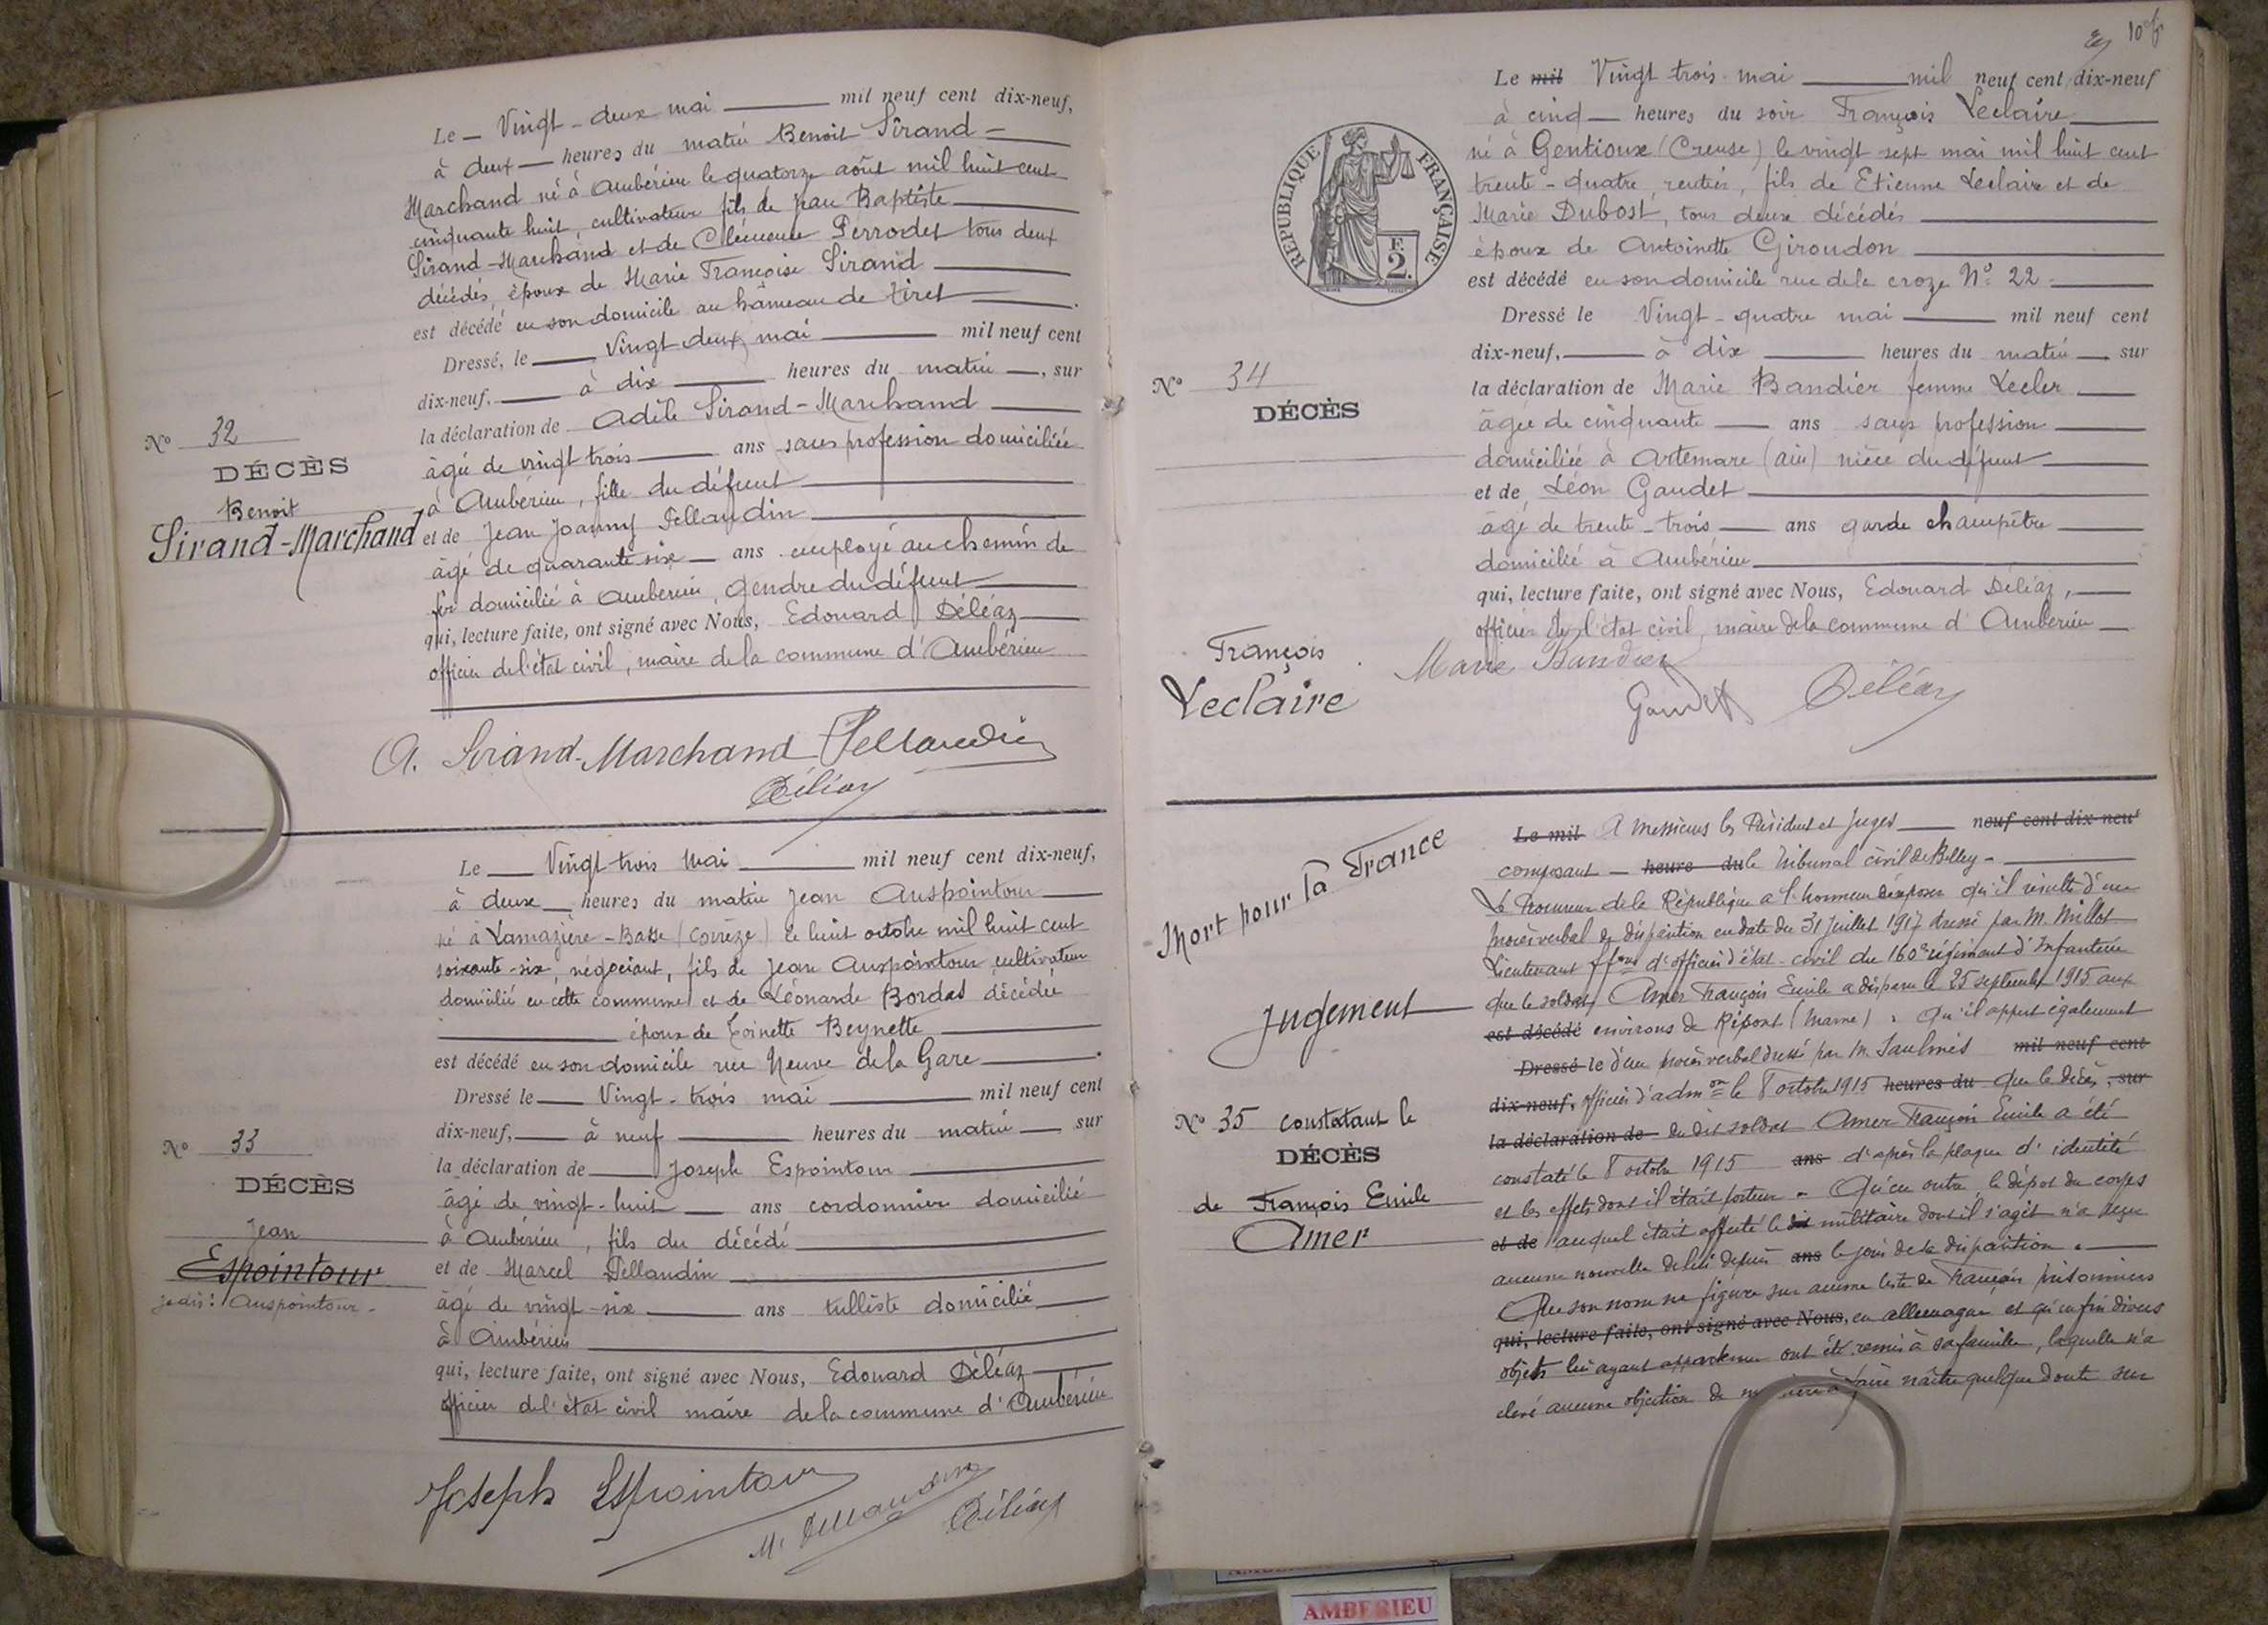 Le — Vingt-deux mai — mil neuf cent dix-neuf,
à deux — heures du matin Benoit Sirand-
Marchand né à Ambérieu le quatorze août mil huit cent
cinquante huit, cultivateur fils de Jean Baptiste
Sirand-Marchand et de Clémence Perrodet tous deux
décédés, époux de Marie Françoise Sirand
est décédé en son domicile au hâmeau de Tiret
Dressé, le — Vingt deux mai — mil neuf cent
dix-neuf, — à dix — heures du matin —, sur
la déclaration de Adèle Sirand-Marchand
âgée de vingt trois — ans sans profession domiciliée
à Ambérieu, fille du défunt
et de Jean Joanny Pellaudin
âgé de quarante six — ans employé au chemin de
fer domicilié à Amberieu, gendre du défunt
qui, lecture faite, ont signé avec Nous, Edouard Déléaz
officier de l'état civil, maire de la commune d'Ambérieu
No 32
DÉCÈS
Benoit
Sirand-Marchand
A. Sirand-Marchand Pellaudin
Déléaz
Le — Vingt trois Mai — mil neuf cent dix-neuf,
à deux — heures du matin Jean Auspointour
né à Lamazière-Basse (Corrèze) le huit octobre mil huit cent
soixante-six, négociant, fils de Jean Auspointour cultivateur
domicilié en cette commune et de Léonarde Bordas décédée
époux de Toinette Beynette
est décédé en son domicile rue Neuve de la Gare
Dressé le — Vingt-trois mai — mil neuf cent
dix-neuf, — à neuf — heures du matin — sur
la déclaration de — Joseph Espointour
âgé de vingt-huit — ans cordonnier domicilié
à Ambérieu, fils du décédé
et de Marcel Pellaudin
âgé de vingt-six — ans tulliste domicilié
à Ambérieu
qui, lecture faite, ont signé avec Nous, Edouard Déléaz
officier de l'état civil maire de la commune d'Ambérieu
No 33
DÉCÈS
Jean
Espointour
Auspointour
Joseph Espointour
M. Pellaudin
Déléaz
10
Le mil Vingt trois mai — mil neuf cent dix-neuf
à cinq — heures du soir François Leclaire
né à Gentioux (Creuse) le vingt-sept mai mil huit cent
trente-quatre, rentier, fils de Etienne Leclaire et de
Marie Dubost, tous deux décédés
époux de Antoinette Giroudon
est décédé en son domicile rue de la croze No 22
Dressé le Vingt-quatre mai — mil neuf cent
dix-neuf, — à dix — heures du matin — sur
la déclaration de Marie Bandier femme Lecler
âgée de cinquante — ans sans profession
domiciliée à Artemare (ain) nièce du défunt
et de Léon Gaudet
âgé de trente-trois — ans garde champêtre
domicilié à Ambérieu
qui, lecture faite, ont signé avec Nous, Edouard Déléaz,
officier de l'état civil, maire de la commune d'Ambérieu
REPUBLIQUE FRANÇAISE
F. 2.
No 34
DÉCÈS
François
Leclaire
Marie Bandier
Gaudet Déléaz
Le mil A Messieurs les Président et Juges — neuf cent dix-neuf
composant — heure du le Tribunal civil de Belley
Le Procureur de la République a l'honneur d'exposer qu'il résulte d'un
procès verbal de disparition en date du 31 Juillet 1917 dressé par M. Millot
Lieutenant ffons d'officier d'état-civil du 160e régiment d'Infanterie
que le soldat Amer François Emile a disparu le 25 septembre 1915 aux
est décédé environs de Ripont (Marne). Qu'il appert également
Dressé le d'un procès verbal dressé par M. Saulmés mil neuf cent
dix-neuf, officier d'admon le 8 octobre 1915 heures du que le décès, sur
la déclaration de du dit soldat Amer François Emile a été
constaté le 8 octobre 1915 ans d'après la plaque d'identité
et les effets dont il était porteur. Qu'en outre, le dépot du corps
et de auquel était affecté le dit militaire dont il s'agit n'a reçu
aucune nouvelle de lui depuis ans le jour de sa disparition.
Que son nom ne figure sur aucune liste de Français prisonniers
qui, lecture faite, ont signé avec Nous, en allemagne et qu'enfin divers
objets lui ayant appartenu ont été remis à sa famille, laquelle n'a
élevé aucune objection de à faire naître quelque doute sur
Mort pour la France
Jugement
No 35 constatant le
DÉCÈS
de François Emile
Amer
AMBERIEU